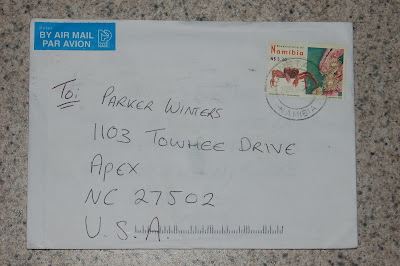 BY AIR MAIL
PAR AVION
Namibia
To: PARKER WINTERS
1103 TOWHEE DRIVE
APEX
NC 27502
U.S.A.
NAMIBIA